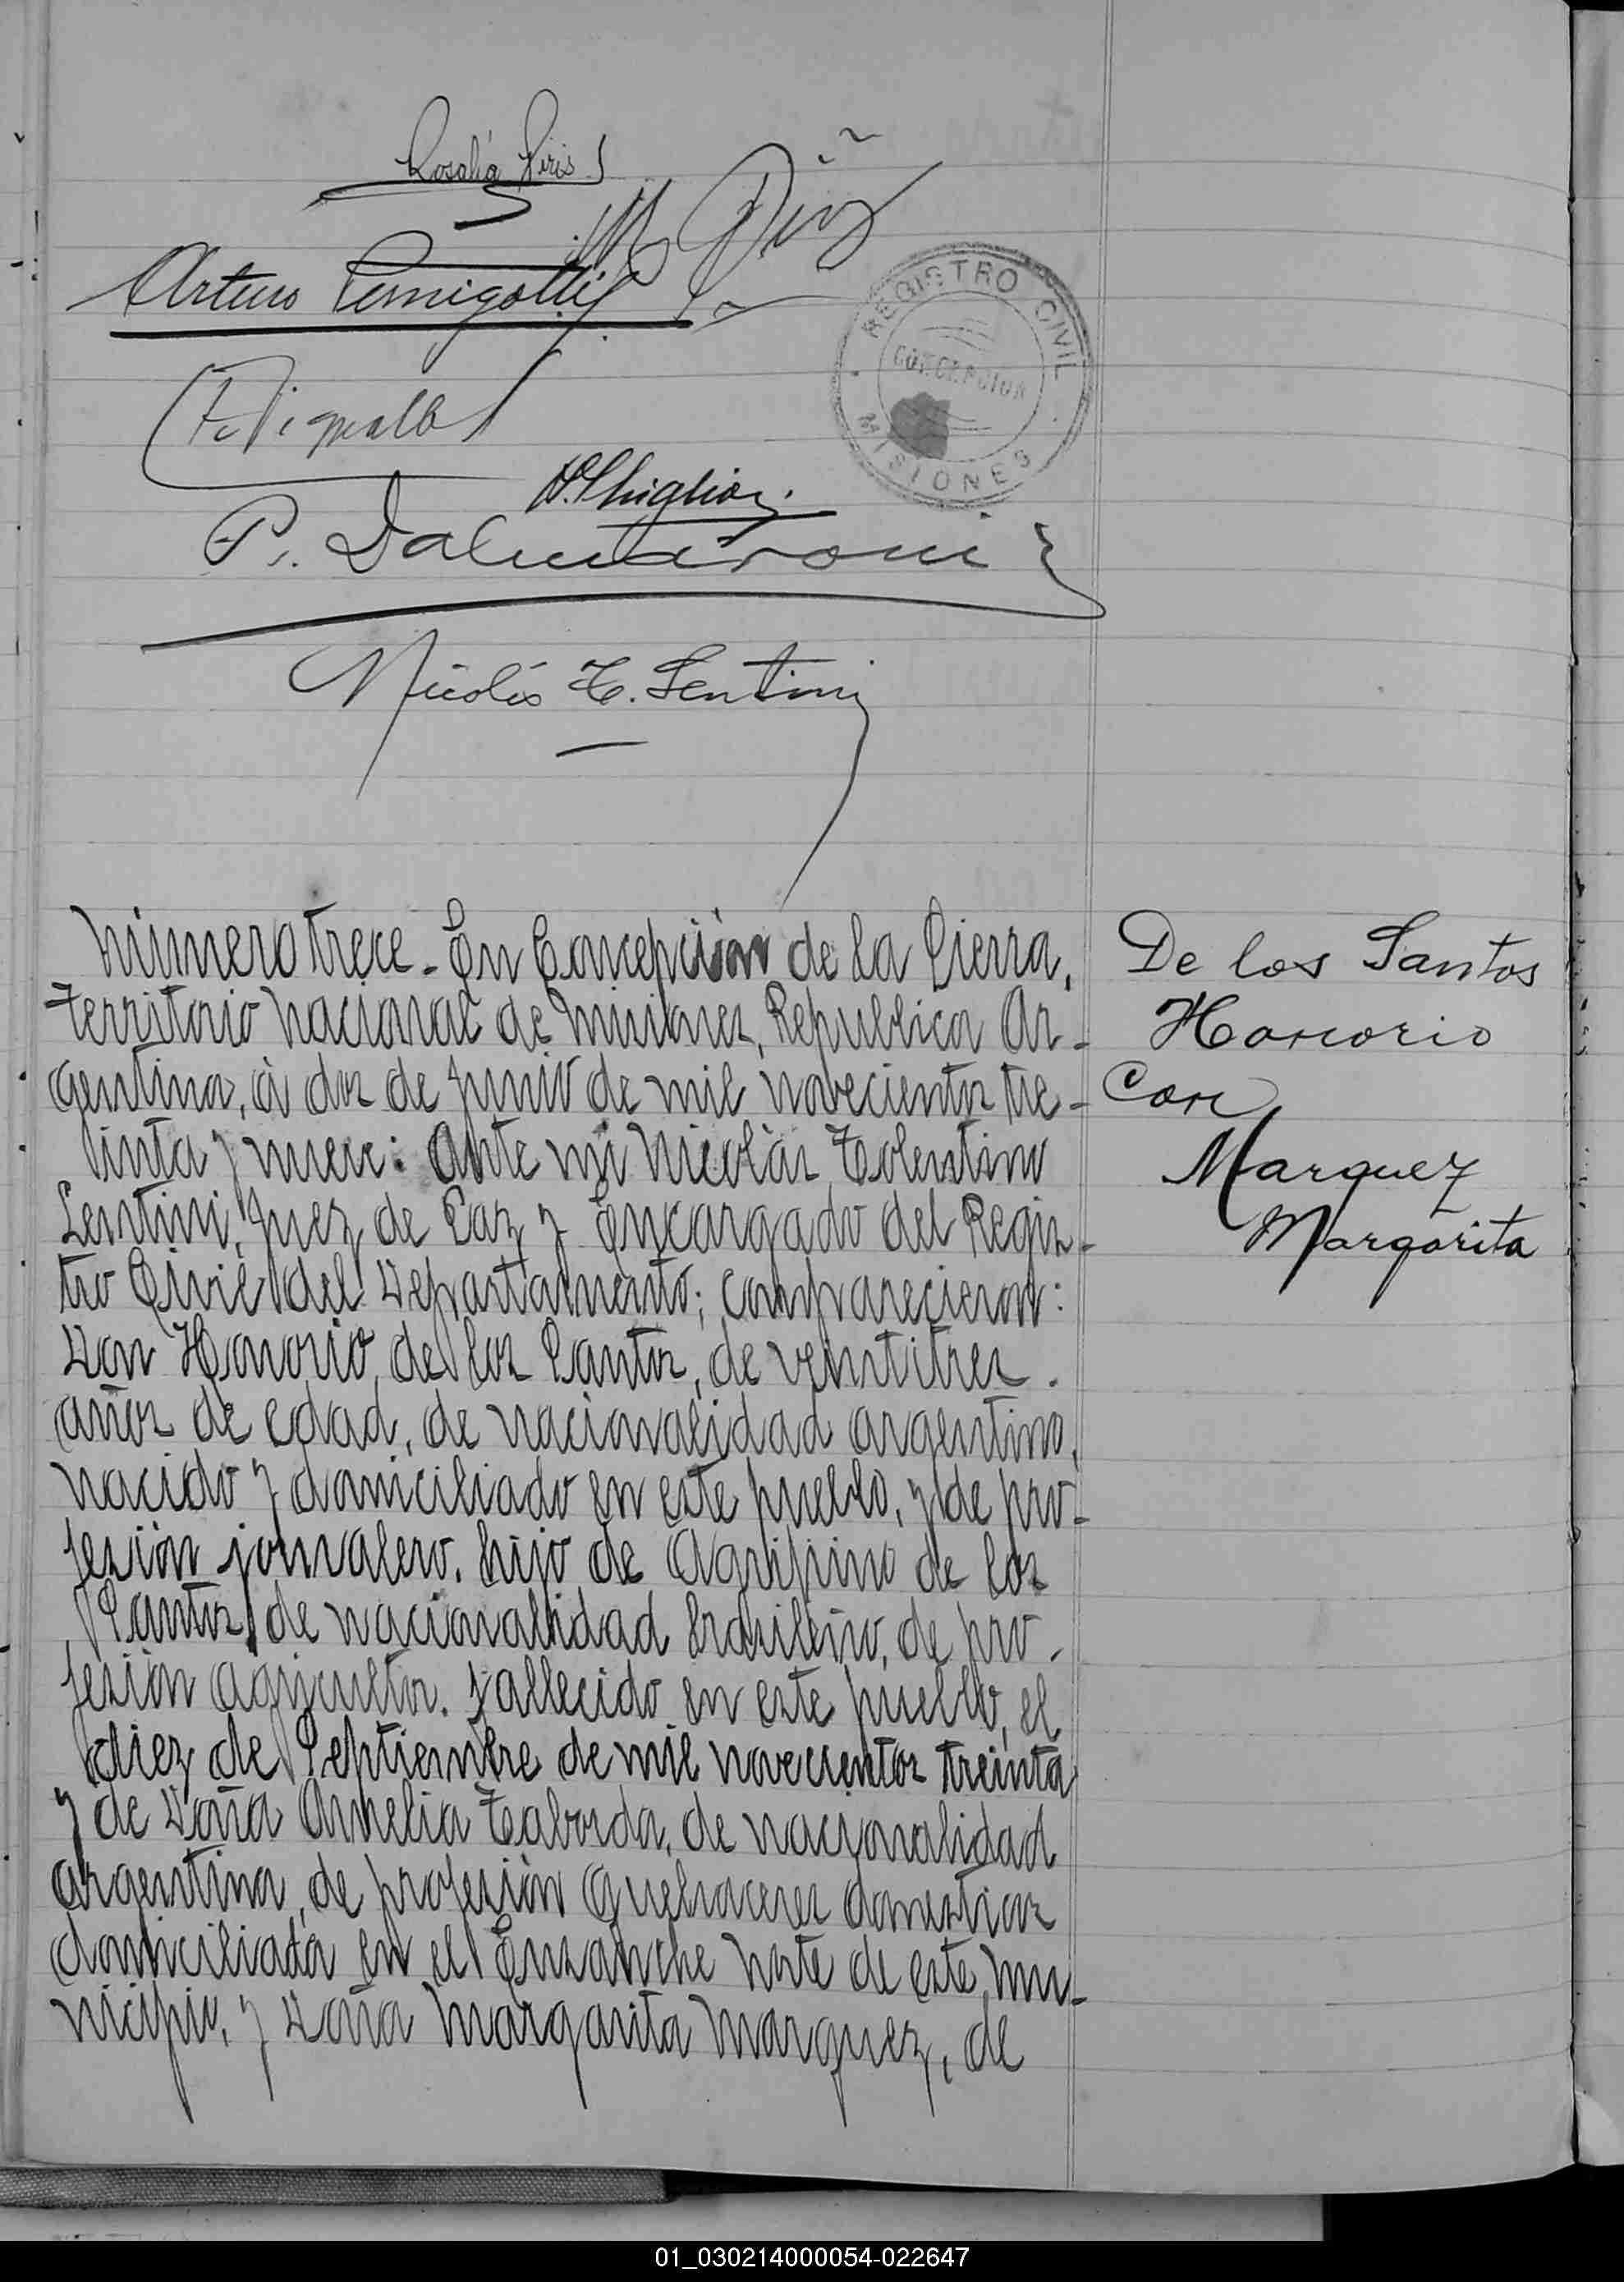 Rosalía Piris
M Piris
Arturo
REGISTRO CIVIL
CONCEPCION
MISIONES
P. Dalmaroni
Nicolás T. Lentini
Número trece. En Concepción de la Sierra,
Territorio Nacional de Misiones, Republica Ar-
gentina, à dos de Junio de mil novecientos tre-
inta y nueve: Ante mi Nicolás Tolentino
Lentini, Juez de Paz y Encargado del Regis-
tro Civil del Departamento; comparecieron:
Don Honorio de los Santos, de veintitres
años de edad, de nacionalidad argentino,
nacido y domiciliado en este pueblo, y de pro-
fesión jornalero, hijo de Agripino de los
Santos, de nacionalidad brasileño, de pro-
fesión agricultor. Fallecido en este pueblo, el
diez de Septiembre de mil novecientos treinta
y de Doña Amelia Taborda, de nacionalidad
argentina, de profesión quehaceres domesticos
domiciliada en el Ensanche Norte de este mu-
nicipio, y Doña Margarita Marquez, de
De los Santos
Honorio
Con
Marquez
Margarita
01_030214000054-022647